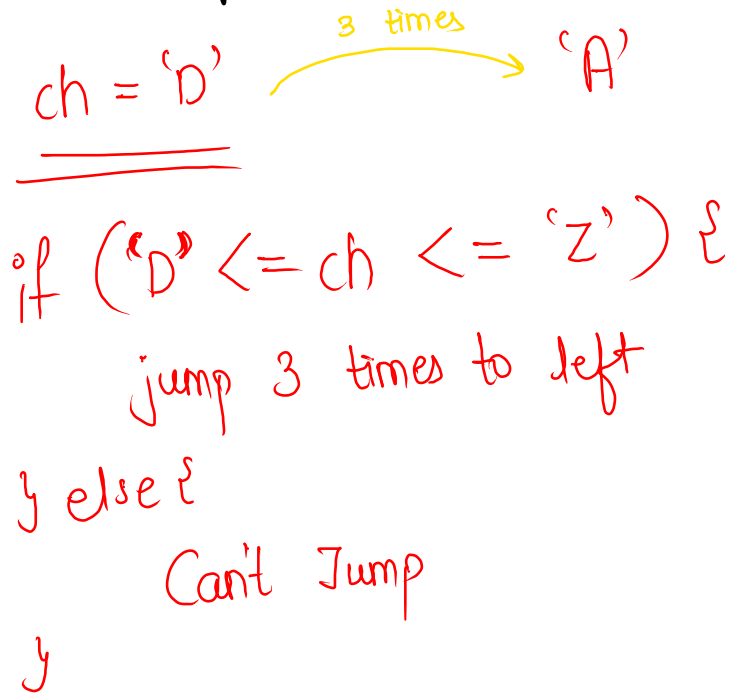 3 times
ch = 'D' 'A'
if ('D' <= ch <= 'Z') {
jump 3 times to left
} else {
Can't Jump
}